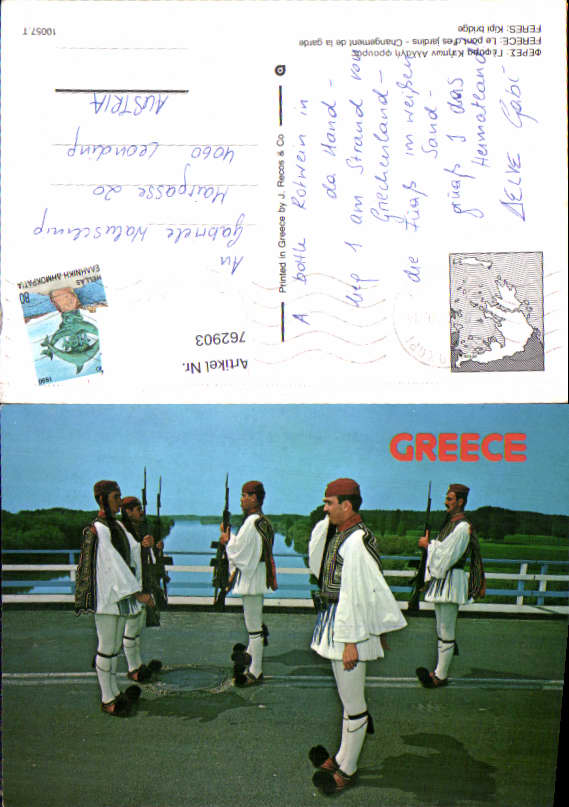 10057.T
ΦΕΡΕΣ: Γέφυρα Κήπων Αλλαγή φρουράς
FERECE: Le pont des jardins - Changement de la garde
FERES: Kipi bridge
A bottle Rotwein in
da Hand -
lieg I am Strand von
Griechenland -
die Füaß im weißen
Sand -
grüaß I das
Heimatland
Gabi -
Printed in Greece by J. Recos & Co
An
Gabriele
Haargasse 20
4060 Leonding
AUSTRIA
ΕΛΛΗΝΙΚΗ ΔΗΜΟΚΡΑΤΙΑ
HELLAS
80
1990
Artikel Nr.
762903
GREECE